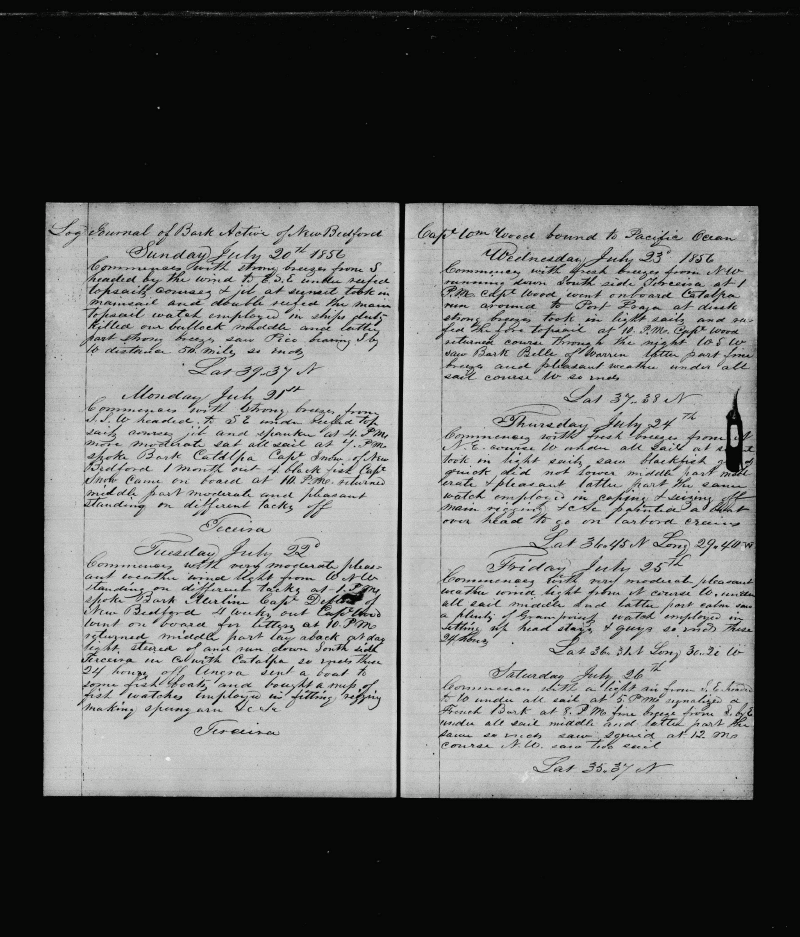 Log Journal of Bark Active of New Bedford
Sunday July 20th 1856
Commences with strong breezes from S
headed by the wind to E.S.E under reefed
topsails courses & jib at sunset took in
mainsail and double reefed the main
topsail watch employed in ships duty
killed our bullock middle and latter
part strong breeze saw Pico bearing S by
W distance 50 miles so ends
Lat 39.37 N
Monday July 21st
Commences with strong breezes from
S.S.W headed to S E under reefed top
sails courses jib and spanker at 4 P.M.
more moderate set all sail at 7 P.M.
spoke Bark Catalpa Capt Snow of New
Bedford 1 month out & black fish Capt
Snow came on board at 10 P.M. returned
middle part moderate and pleasant
standing on different tacks off
Terceira
Tuesday July 22d
Commences with very moderate pleas-
ant weather wind light from W N W
standing on different tacks at 1 P.M.
spoke Bark Merlin Capt of
New Bedford 4 weeks out Capt Wood
went on board for letters at 10 P.M.
returned middle part lay aback at day
light steered of and run down South side
Terceira in Co with Catalpa so ends these
24 hours of Angra sent a boat to
some fish boats and bought a mess of
fish watches employed in fitting rigging
making spunyarn &c &c
Terceira
Capt Wm Wood bound to Pacific Ocean
Wednesday July 23d 1856
Commences with fresh breezes from N.W
running down South side Terceira at 1
P.M. Capt Wood went onboard Catalpa
run around to Port Praya at dusk
strong breezes took in light sails and ree-
fed the fore topsail at 10. P.M. Capt Wood
returned course through the night W S W
saw Bark Belle of Warren latter part fine
breezes and pleasant weather under all
sail course W so ends
Lat 37.38 N
Thursday July 24th
Commences with fresh breezes from
N.E. course W under all sail at
took in light sails saw blackfish
quick did not lower middle part mod-
erate & pleasant latter part the same
watch employed in caping & seizing off
main rigging & &c painted a boat
over head to go on larbord cranes
Lat 36.45 N Long 29.40 W
Friday July 25th
Commences with very moderate pleasant
weather wind light from N course W. under
all sail middle and latter part calm saw
a plenty of Grampuses watch employed in
setting up head stays & guys so ends these
24 hours
Lat 36.31 N Long 30.20 W
Saturday July 26th
Commences with a light air from
W under all sail at 5 P.M. signalized a
French Bark at 8. P.M fine breeze from S. by E
under all sail middle and latter part the
same so ends saw squid at 12. Ms
course N.W. saw two sail
Lat 35.37 N